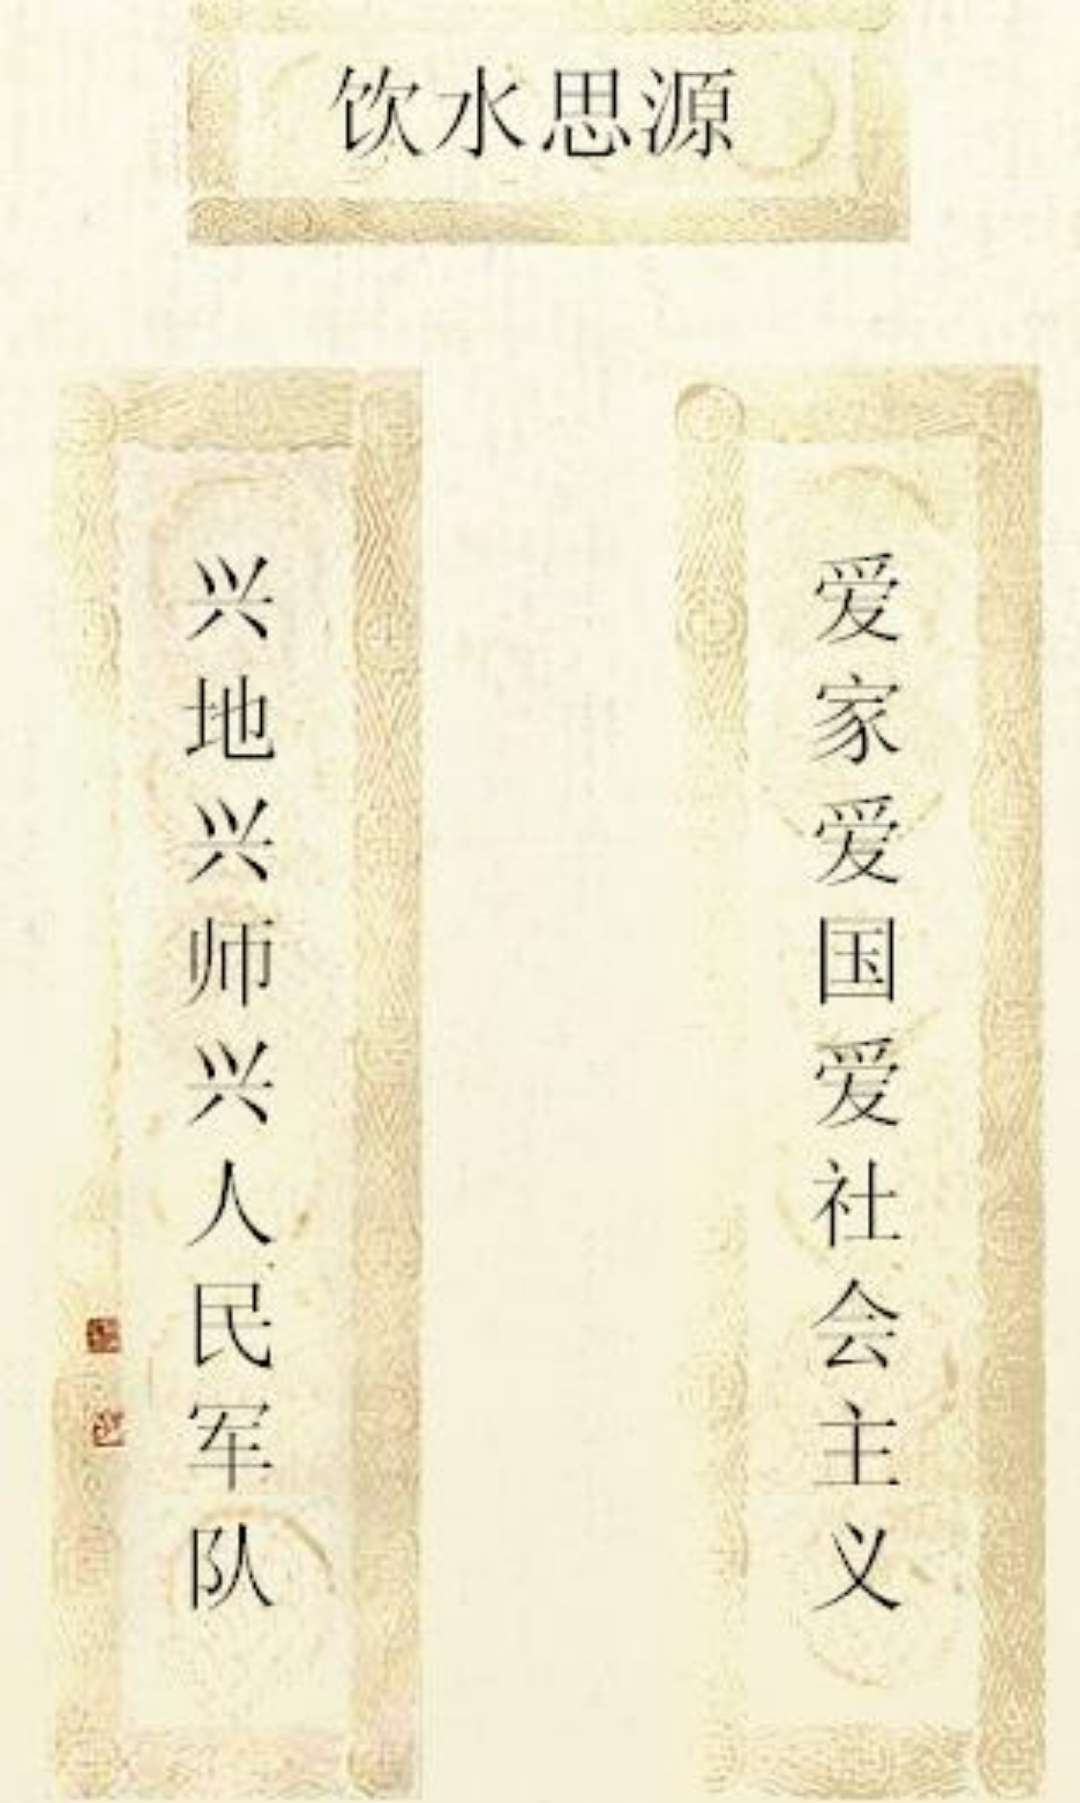 饮水思源
爱家爱国爱社会主义
兴地兴师兴人民军队